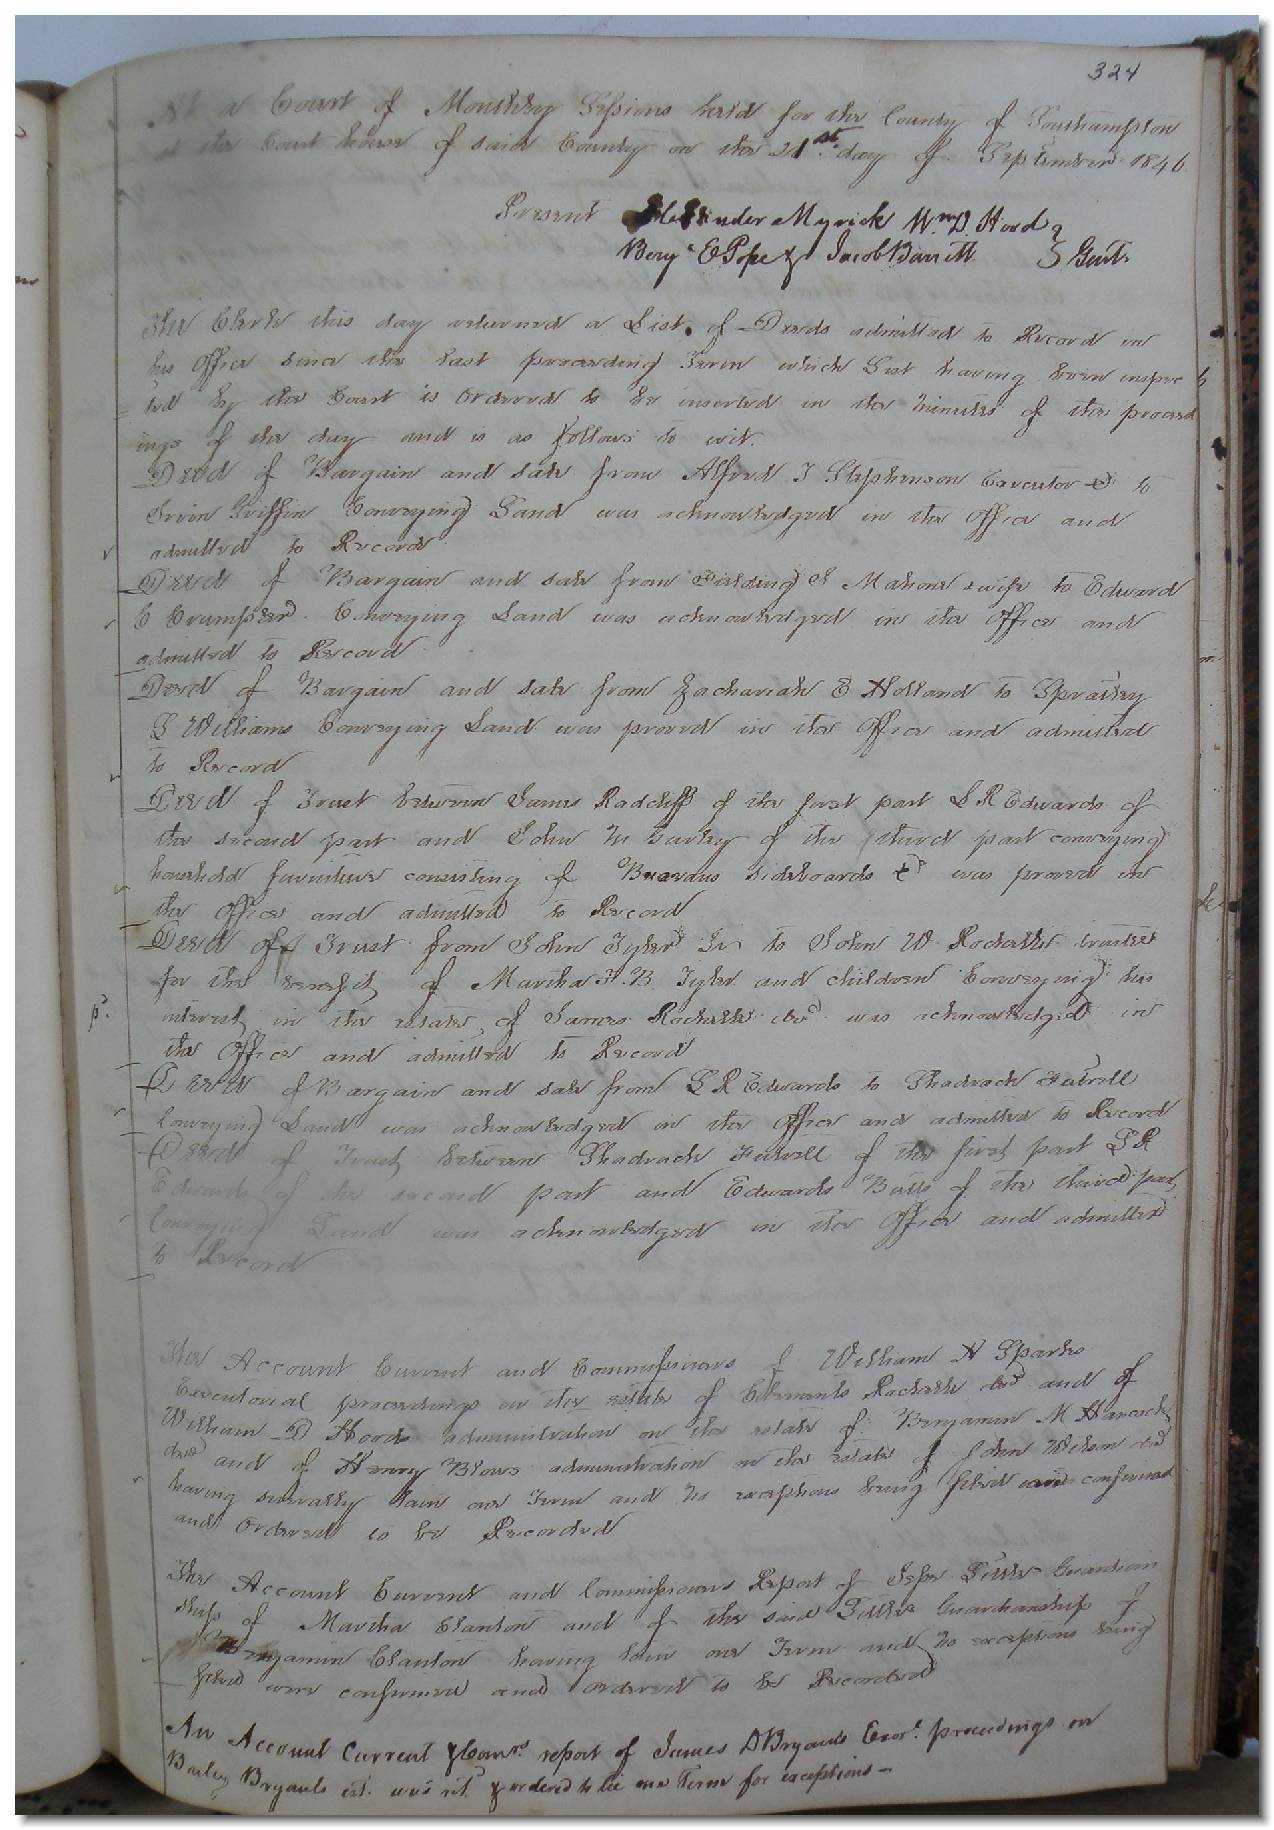 324
At a Court of Monthly Sessions held for the County of Southampton
at the Court house of said County on the 21st day of September 1846
Present Alexander Myrick Wm D. Hood
Benj E Pope & Jacob Barrett Gent.
The Clerk this day returned a List of Deeds admitted to Record in
his Office since the last preceeding Term which List having been inspec
ted by the Court is Ordered to be inserted in the minutes of the proceed
ings of the day and is as follows to wit.
Deed of Bargain and sale from Alfred J Stephenson Executor &c to
Irvin Griffin Conveying Land was acknowledged in the Office and
admitted to Record
Deed of Bargain and sale from Fielding J Mahone & wife to Edward
C Crumpler. Conveying Land was acknowledged in the Office and
admitted to Record
Deed of Bargain and sale from Zachariah E Holland to Spratley
S Williams Conveying Land was proved in the Office and admitted
to Record
Deed of Trust between James Radcliff of the first part L R Edwards of
the second part and John M Gurley of the third part conveying
household furniture consisting of Bureaus sideboards &c was proved in
the Office and admitted to Record
Deed of Trust from John Tyler Jr to John W. Rochelle trustee
for the benefit of Martha H. B. Tyler and children Conveying his
interest in the estate of James Rochelle decd was acknowledged in
the Office and admitted to Record
Deed of Bargain and sale from L R Edwards to Shadrach Futrell
Conveying Land was acknowledged in the Office and admitted to Record
Deed of Trust between Shadrach Futrell of the first part L R
Edwards of the second part and Edwards Butts of the third part
Conveying Land was acknowledged in the Office and admitted
to Record
The Account Current and Commissioners of William H Sparks
Executorial proceedings on the estate of Clements Rochelle decd and of
William D Hoods administration on the estate of Benjamin M Hancock
decd and of Henry Blows administration on the estate of John Wilson decd
having severally lain one Term and no exceptions being filed were confirmed
and Ordered to be Recorded
The Account Current and Commissioners Report of Jesse Little Guardian
ship of Martha Clanton and of the said Littles Guardianship of
Benjamin Clanton having lain one Term and no exceptions being
filed were confirmed and ordered to be Recorded
An Account Current & Comrs report of James D Bryants Exors proceedings on
Bailey Bryants est. was retd & ordered to lie one Term for exceptions -